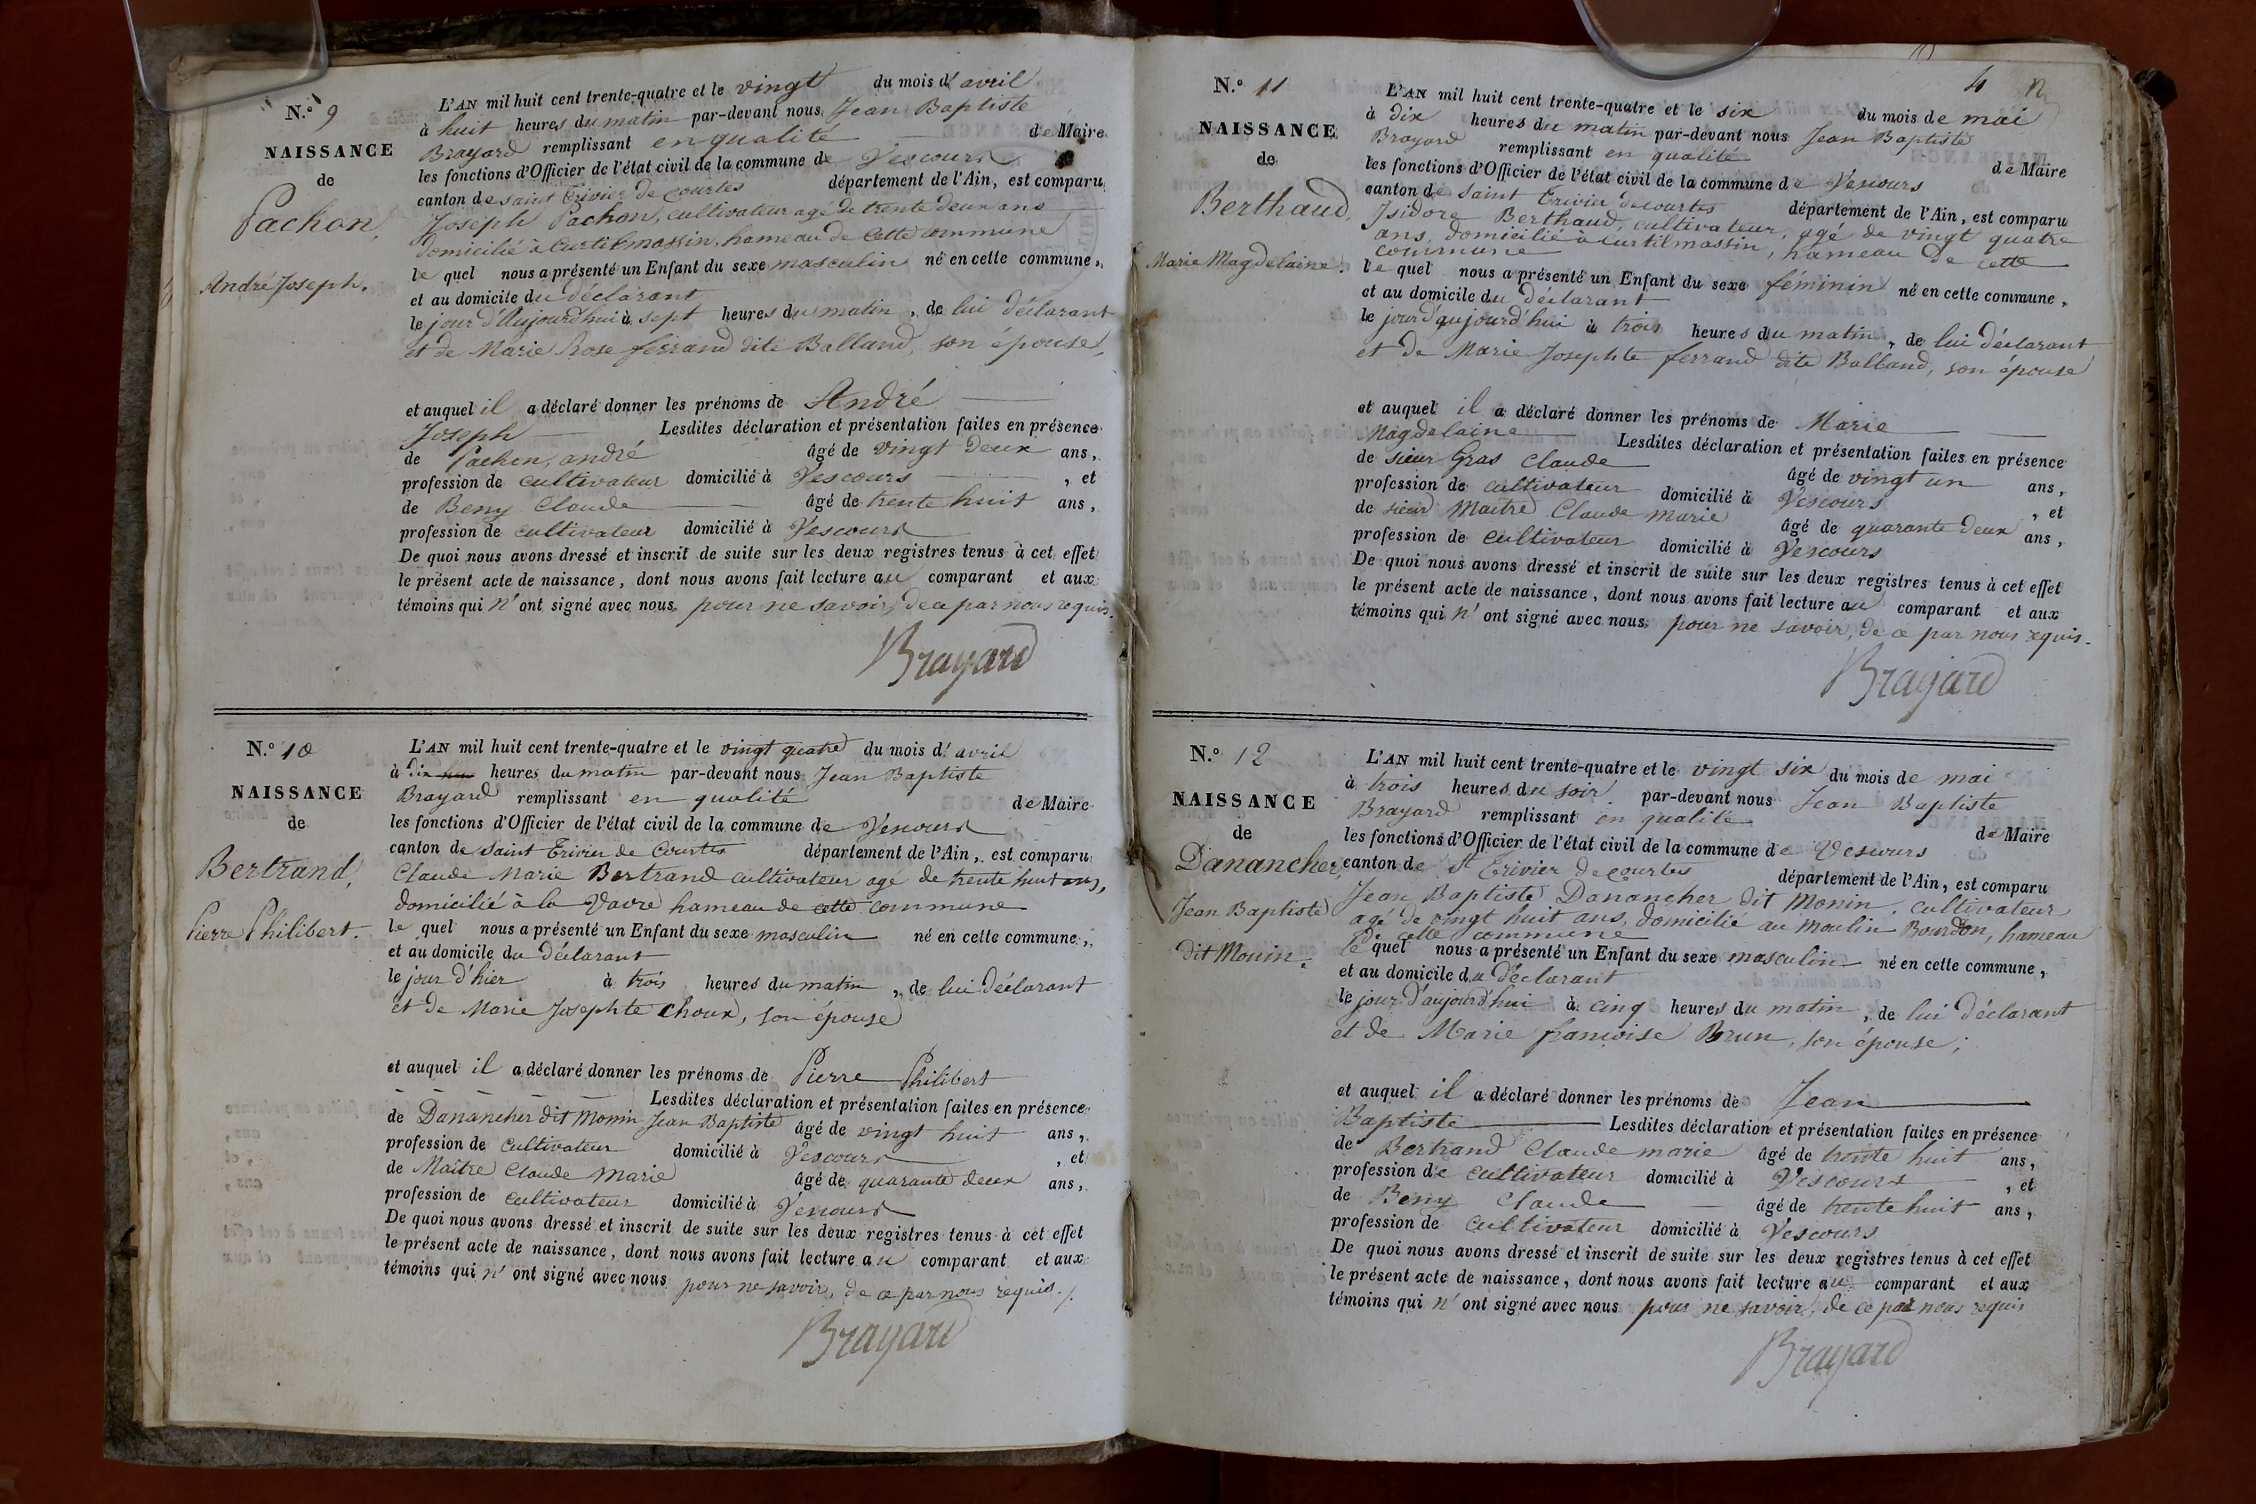 N.º 9
NAISSANCE
de
Pachon,
André Joseph.
L'AN mil huit cent trente-quatre et le vingt du mois d'avril
à huit heures du matin par-devant nous Jean Baptiste
Brayard remplissant en qualité de Maire
les fonctions d'Officier de l'état civil de la commune de Vescours
canton de Saint Trivier de Courtes département de l'Ain, est comparu
Joseph Pachon, cultivateur agé de trente deux ans
domicilié à Curtilmassin, hameau de cette commune
le quel nous a présenté un Enfant du sexe masculin né en cette commune,
et au domicile du déclarant
le jour d'Aujourd'hui à sept heures du matin, de lui déclarant
et de Marie Rose ferrand dite Balland, son épouse,
et auquel il a déclaré donner les prénoms de André
Joseph Lesdites déclaration et présentation faites en présence
de Pachon, andré âgé de vingt deux ans,
profession de cultivateur domicilié à Vescours, et
de Beny Claude âgé de trente huit ans,
profession de cultivateur domicilié à Vescours
De quoi nous avons dressé et inscrit de suite sur les deux registres tenus à cet effet
le présent acte de naissance, dont nous avons fait lecture au comparant et aux
témoins qui n'ont signé avec nous pour ne savoir, de ce par nous requis.
Brayard
N.º 10
NAISSANCE
de
Bertrand,
Pierre Philibert.
L'AN mil huit cent trente-quatre et le vingt quatre du mois d'avril
à dix heures du matin par-devant nous Jean Baptiste
Brayard remplissant en qualité de Maire
les fonctions d'Officier de l'état civil de la commune de Vescours
canton de Saint Trivier de Courtes département de l'Ain, est comparu
Claude Marie Bertrand cultivateur agé de trente huit ans,
domicilié à la Vavre hameau de cette commune
le quel nous a présenté un Enfant du sexe masculin né en cette commune,
et au domicile du déclarant
le jour d'hier à trois heures du matin, de lui déclarant
et de Marie Josephte Choux, son épouse
et auquel il a déclaré donner les prénoms de Pierre Philibert
Lesdites déclaration et présentation faites en présence
de Danancher dit Monin Jean Baptiste âgé de vingt huit ans,
profession de cultivateur domicilié à Vescours, et
de Maitre Claude Marie âgé de quarante deux ans,
profession de cultivateur domicilié à Vescours
De quoi nous avons dressé et inscrit de suite sur les deux registres tenus à cet effet
le présent acte de naissance, dont nous avons fait lecture au comparant et aux
témoins qui n'ont signé avec nous pour ne savoir, de ce par nous requis.
Brayard
4
N.º 11
NAISSANCE
de
Berthaud,
Marie Magdelaine.
L'AN mil huit cent trente-quatre et le six du mois de mai
à dix heures du matin par-devant nous Jean Baptiste
Brayard remplissant en qualité de Maire
les fonctions d'Officier de l'état civil de la commune de Vescours
canton de Saint Trivier de courtes département de l'Ain, est comparu
Isidore Berthaud, cultivateur, agé de vingt quatre
ans, domicilié à Curtilmassin, hameau de cette
commune
le quel nous a présenté un Enfant du sexe féminin né en cette commune,
et au domicile du déclarant
le jour d'aujourd'hui à trois heures du matin, de lui déclarant
et de Marie Josephte ferrand dite Balland, son épouse
et auquel il a déclaré donner les prénoms de Marie
Magdelaine Lesdites déclaration et présentation faites en présence
de sieur Gras Claude âgé de vingt un ans,
profession de cultivateur domicilié à Vescours, et
de sieur Maitre Claude Marie âgé de quarante deux ans,
profession de cultivateur domicilié à Vescours
De quoi nous avons dressé et inscrit de suite sur les deux registres tenus à cet effet
le présent acte de naissance, dont nous avons fait lecture au comparant et aux
témoins qui n'ont signé avec nous pour ne savoir, de ce par nous requis.
Brayard
N.º 12
NAISSANCE
de
Danancher,
Jean Baptiste
dit Monin.
L'AN mil huit cent trente-quatre et le vingt six du mois de mai
à trois heures du soir par-devant nous Jean Baptiste
Brayard remplissant en qualité de Maire
les fonctions d'Officier de l'état civil de la commune de Vescours
canton de St Trivier de courtes département de l'Ain, est comparu
Jean Baptiste Danancher dit Monin, cultivateur
agé de vingt huit ans, domicilié au Moulin Bourdon, hameau
de cette commune
le quel nous a présenté un Enfant du sexe masculin né en cette commune,
et au domicile du déclarant
le jour d'aujourd'hui à cinq heures du matin, de lui déclarant
et de Marie françoise Brun, son épouse;
et auquel il a déclaré donner les prénoms de Jean
Baptiste Lesdites déclaration et présentation faites en présence
de Bertrand Claude marie âgé de trente huit ans,
profession de cultivateur domicilié à Vescours, et
de Beny Claude âgé de trente huit ans,
profession de cultivateur domicilié à Vescours
De quoi nous avons dressé et inscrit de suite sur les deux registres tenus à cet effet
le présent acte de naissance, dont nous avons fait lecture au comparant et aux
témoins qui n'ont signé avec nous pour ne savoir, de ce par nous requis
Brayard